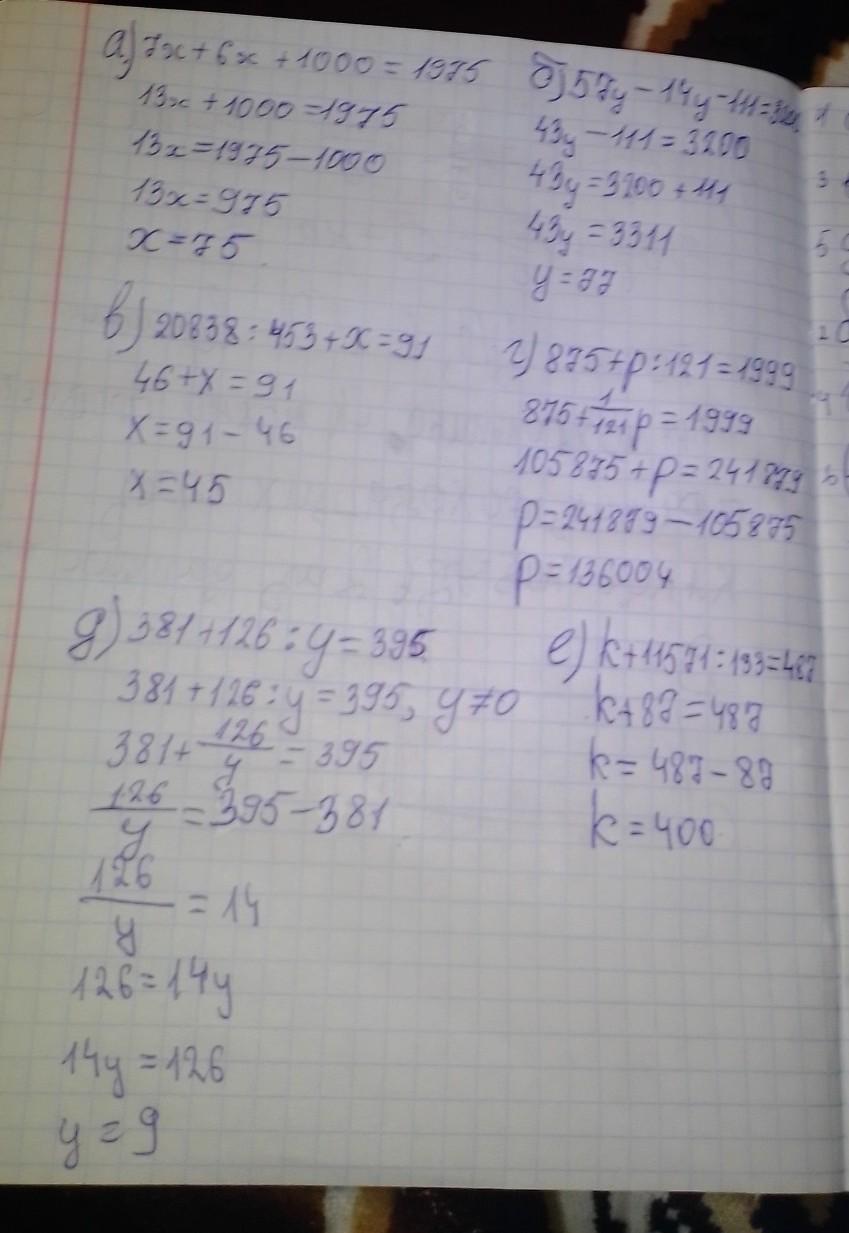 а) 7x + 6x + 1000 = 1975
13x + 1000 = 1975
13x = 1975 - 1000
13x = 975
x = 75
б) 57y - 14y - 111 =
43y - 111 = 3200
43y = 3200 + 111
43y = 3311
y = 77
в) 20838 : 453 + x = 91
46 + x = 91
x = 91 - 46
x = 45
г) 875 + p : 121 = 1999
875 + 1/121 p = 1999
105875 + p = 241879
p = 241879 - 105875
p = 136004
д) 381 + 126 : y = 395
381 + 126 : y = 395, y ≠ 0
381 + 126/y = 395
126/y = 395 - 381
126/y = 14
126 = 14y
14y = 126
y = 9
е) k + 11571 : 133 = 487
k + 87 = 487
k = 487 - 87
k = 400